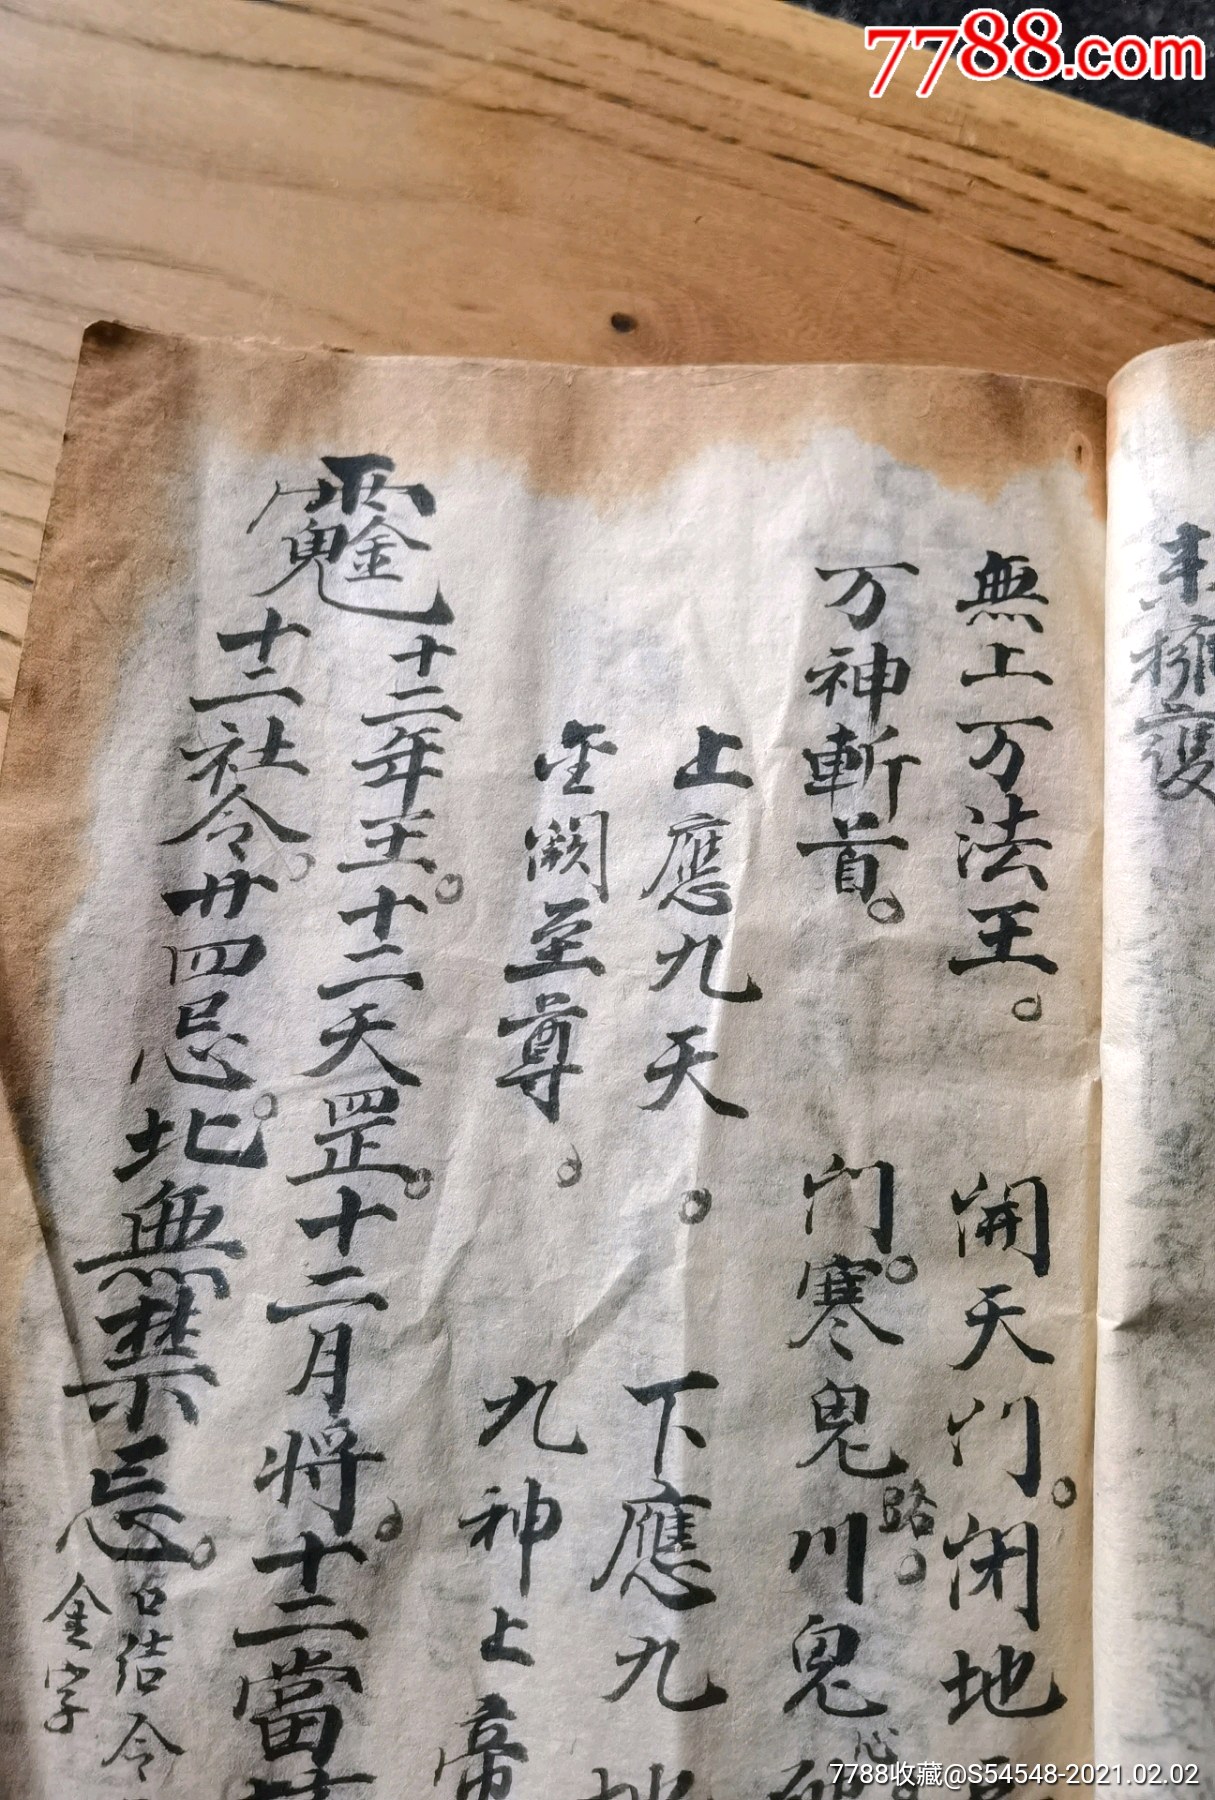 7788.com
擁護
無上万法王。開天門。闭地
万神斬首。門。寒鬼路。川鬼心
上應九天。下應九地
金闕至尊。九神上帝
十二年王。十二天罡。十二月將。十二當
十二社令。廿四忌。北無禁忌。口结令
金字
7788收藏@S54548-2021.02.02